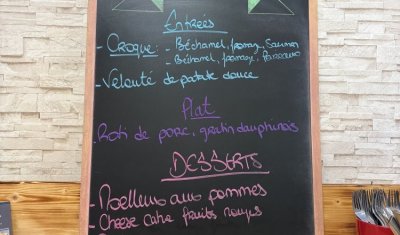 Entrées
- Croque: - Béchamel, fromage, Saumon
- Béchamel, fromage, Poireaux
- Velouté de patate douce
Plat
- Roti de porc, gratin dauphinois
DESSERTS
- Moelleux aux pommes
- Cheese cake fruits rouges